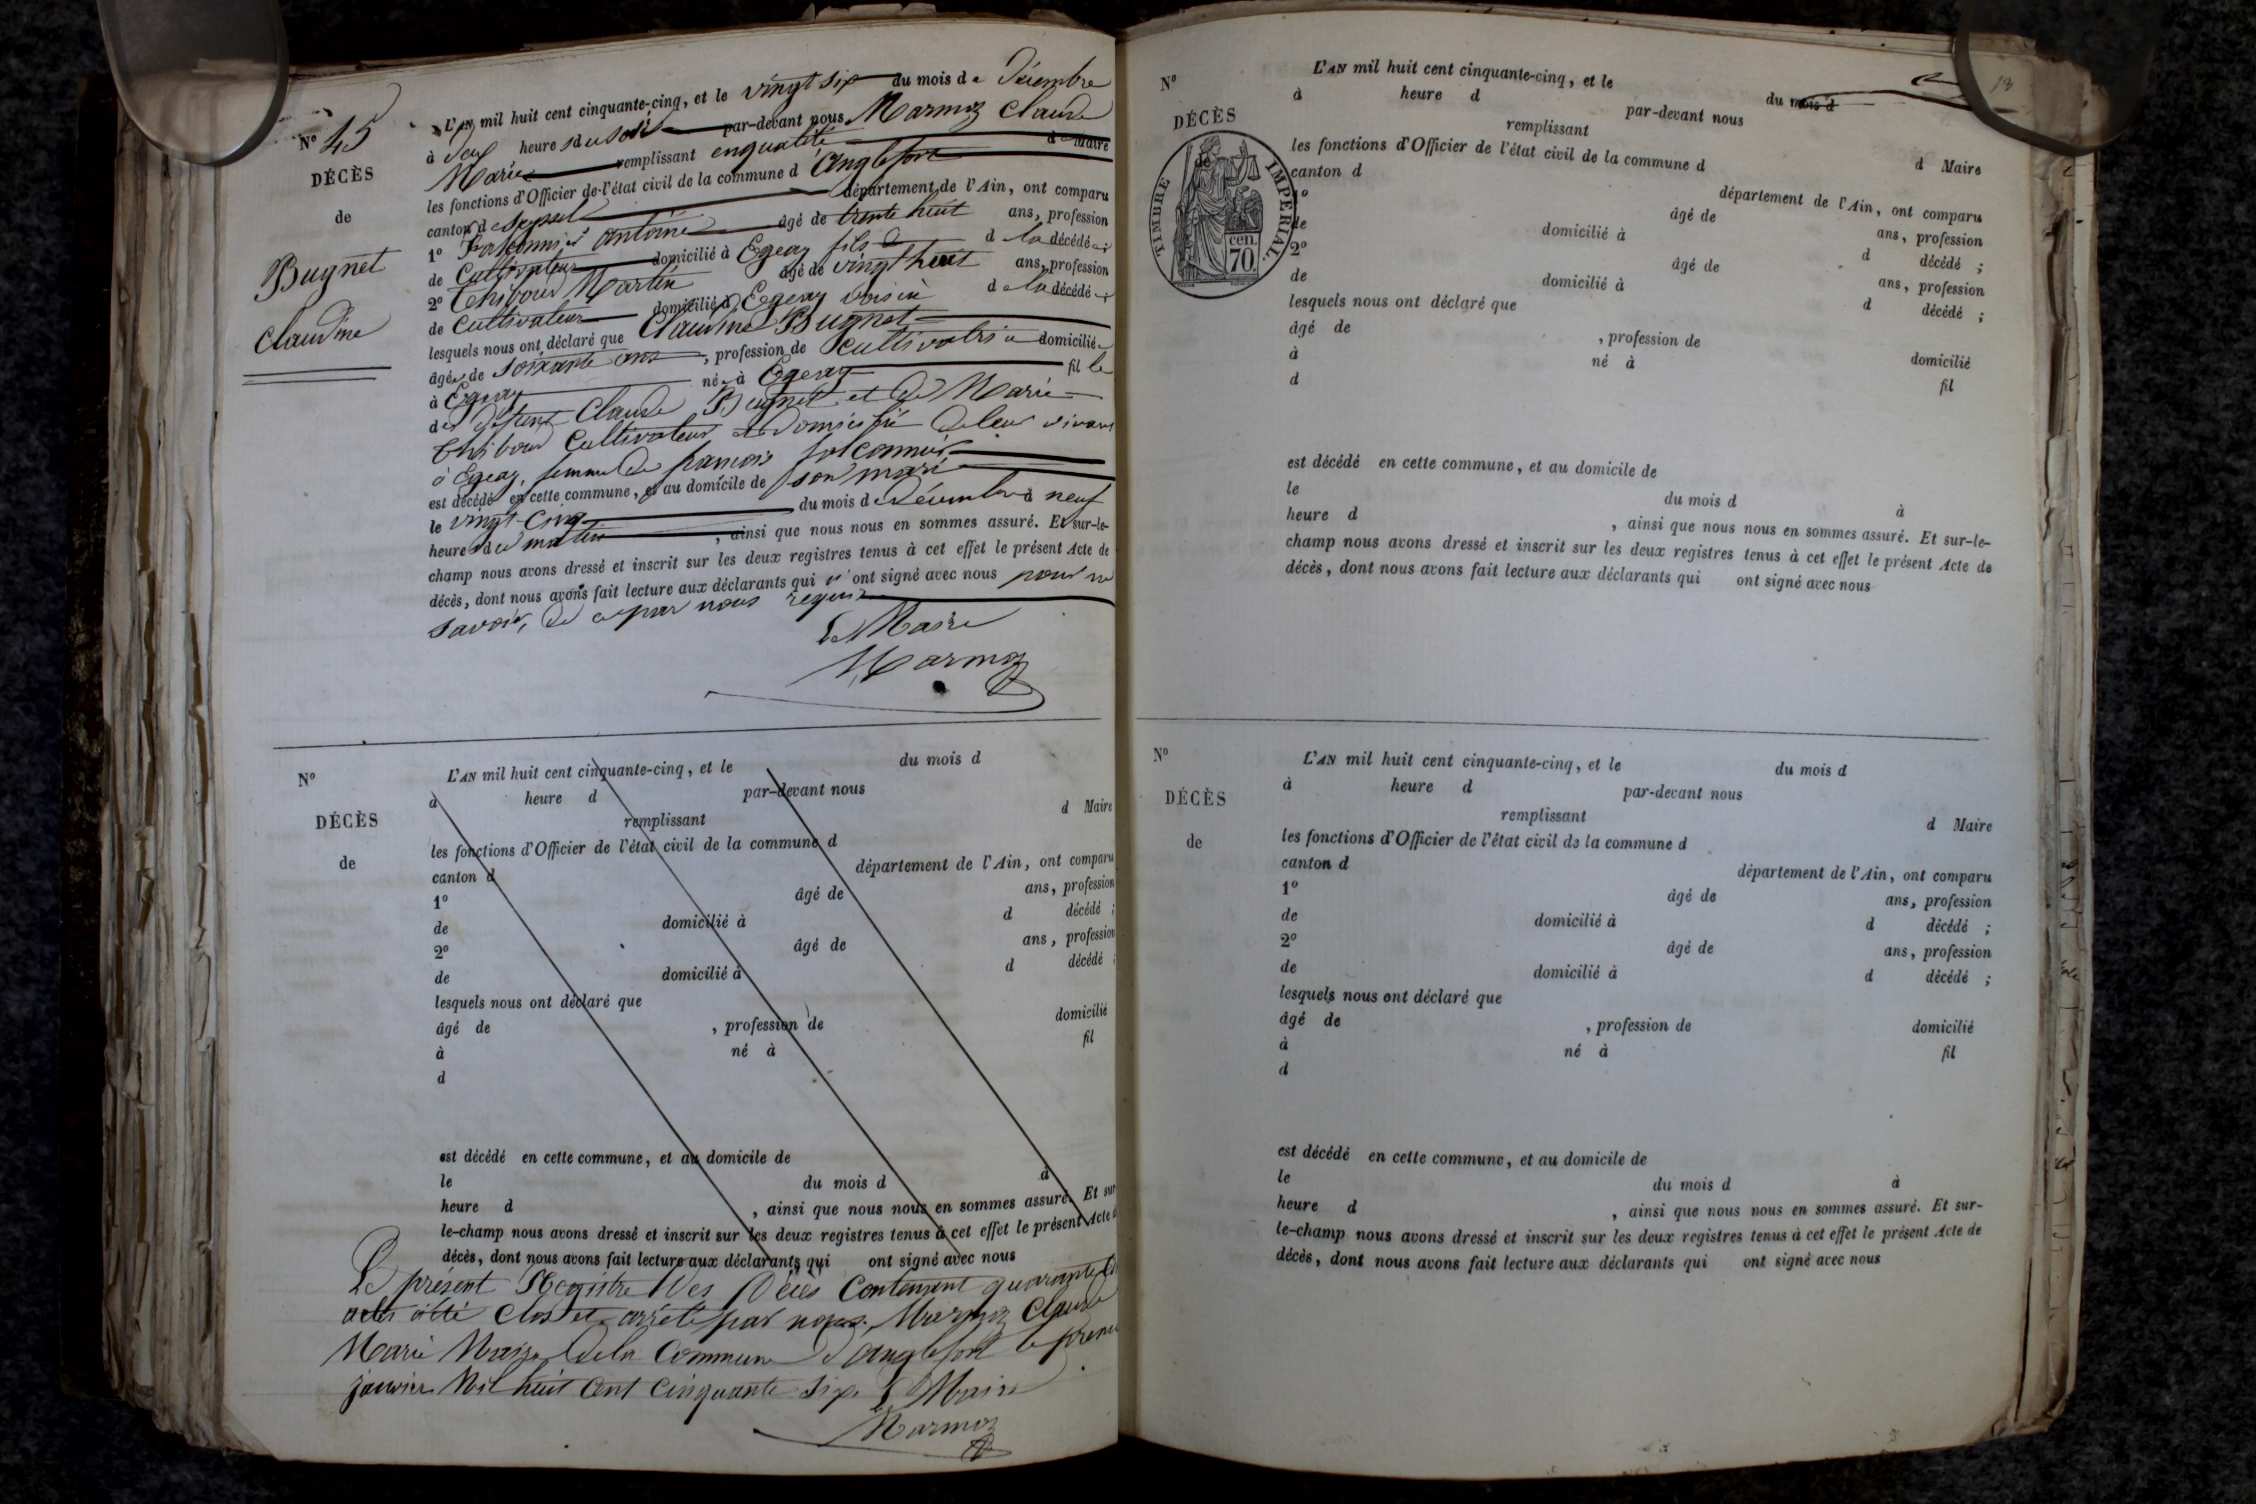 N° 45
DÉCÈS
de
Bugnet
Claudine
L'AN mil huit cent cinquante-cinq, et le vingt six du mois de Décembre
à deux heures du soir par-devant nous Marmoz Claude
Marie remplissant en qualité de Maire
les fonctions d'Officier de l'état civil de la commune d'Anglefort
canton de Seyssel département de l'Ain, ont comparu
1° Falconnier Antoine âgé de trente huit ans, profession
de Cultivateur domicilié à Egeay fils de la décédée;
2° Thiboud Martin âgé de vingt huit ans, profession
de Cultivateur domicilié à Egeay voisin de la décédée;
lesquels nous ont déclaré que Claudine Bugnet
âgée de soixante ans, profession de cultivatrice domiciliée
à Egeay née à Egeay fille
de Claude Bugnet et de Marie
Thiboud Cultivateurs de leur vivant
à Egeay, femme de françois falconnier
est décédée en cette commune, et au domicile de son mari
le vingt-cinq du mois de Décembre à neuf
heures du matin, ainsi que nous nous en sommes assuré. Et sur-le-
champ nous avons dressé et inscrit sur les deux registres tenus à cet effet le présent Acte de
décès, dont nous avons fait lecture aux déclarants qui n'ont signé avec nous pour ne
savoir, de ce par nous requis
Le Maire
Marmoz
N°
DÉCÈS
de
L'AN mil huit cent cinquante-cinq, et le du mois d
à heure d par-devant nous
remplissant d Maire
les fonctions d'Officier de l'état civil de la commune d
canton d département de l'Ain, ont comparu
1° âgé de ans, profession
de domicilié à d décédé ;
2° âgé de ans, profession
de domicilié à d décédé ;
lesquels nous ont déclaré que
âgé de , profession de domicilié
à né à fil
d
est décédé en cette commune, et au domicile de
le du mois d à
heure d , ainsi que nous nous en sommes assuré. Et sur
le-champ nous avons dressé et inscrit sur les deux registres tenus à cet effet le présent Acte d
décès, dont nous avons fait lecture aux déclarants qui ont signé avec nous
Le présent Registre Des Décès Contenant quarante
actes a été Clos et arrêté par nous, Marmoz Claude
Marie Maire de la Commune d'anglefort le premi
janvier Mil huit Cent Cinquante six. Le Maire
Marmoz
13
N°
DÉCÈS
de
TIMBRE IMPERIAL.
cen.
70.
L'AN mil huit cent cinquante-cinq, et le du mois d
à heure d par-devant nous
remplissant d Maire
les fonctions d'Officier de l'état civil de la commune d
canton d département de l'Ain, ont comparu
1° âgé de ans, profession
de domicilié à d décédé ;
2° âgé de ans, profession
de domicilié à d décédé ;
lesquels nous ont déclaré que
âgé de , profession de domicilié
à né à fil
d
est décédé en cette commune, et au domicile de
le du mois d à
heure d , ainsi que nous nous en sommes assuré. Et sur-le-
champ nous avons dressé et inscrit sur les deux registres tenus à cet effet le présent Acte de
décès, dont nous avons fait lecture aux déclarants qui ont signé avec nous
N°
DÉCÈS
de
L'AN mil huit cent cinquante-cinq, et le du mois d
à heure d par-devant nous
remplissant d Maire
les fonctions d'Officier de l'état civil de la commune d
canton d département de l'Ain, ont comparu
1° âgé de ans, profession
de domicilié à d décédé ;
2° âgé de ans, profession
de domicilié à d décédé ;
lesquels nous ont déclaré que
âgé de , profession de domicilié
à né à fil
d
est décédé en cette commune, et au domicile de
le du mois d à
heure d , ainsi que nous nous en sommes assuré. Et sur-
le-champ nous avons dressé et inscrit sur les deux registres tenus à cet effet le présent Acte de
décès, dont nous avons fait lecture aux déclarants qui ont signé avec nous